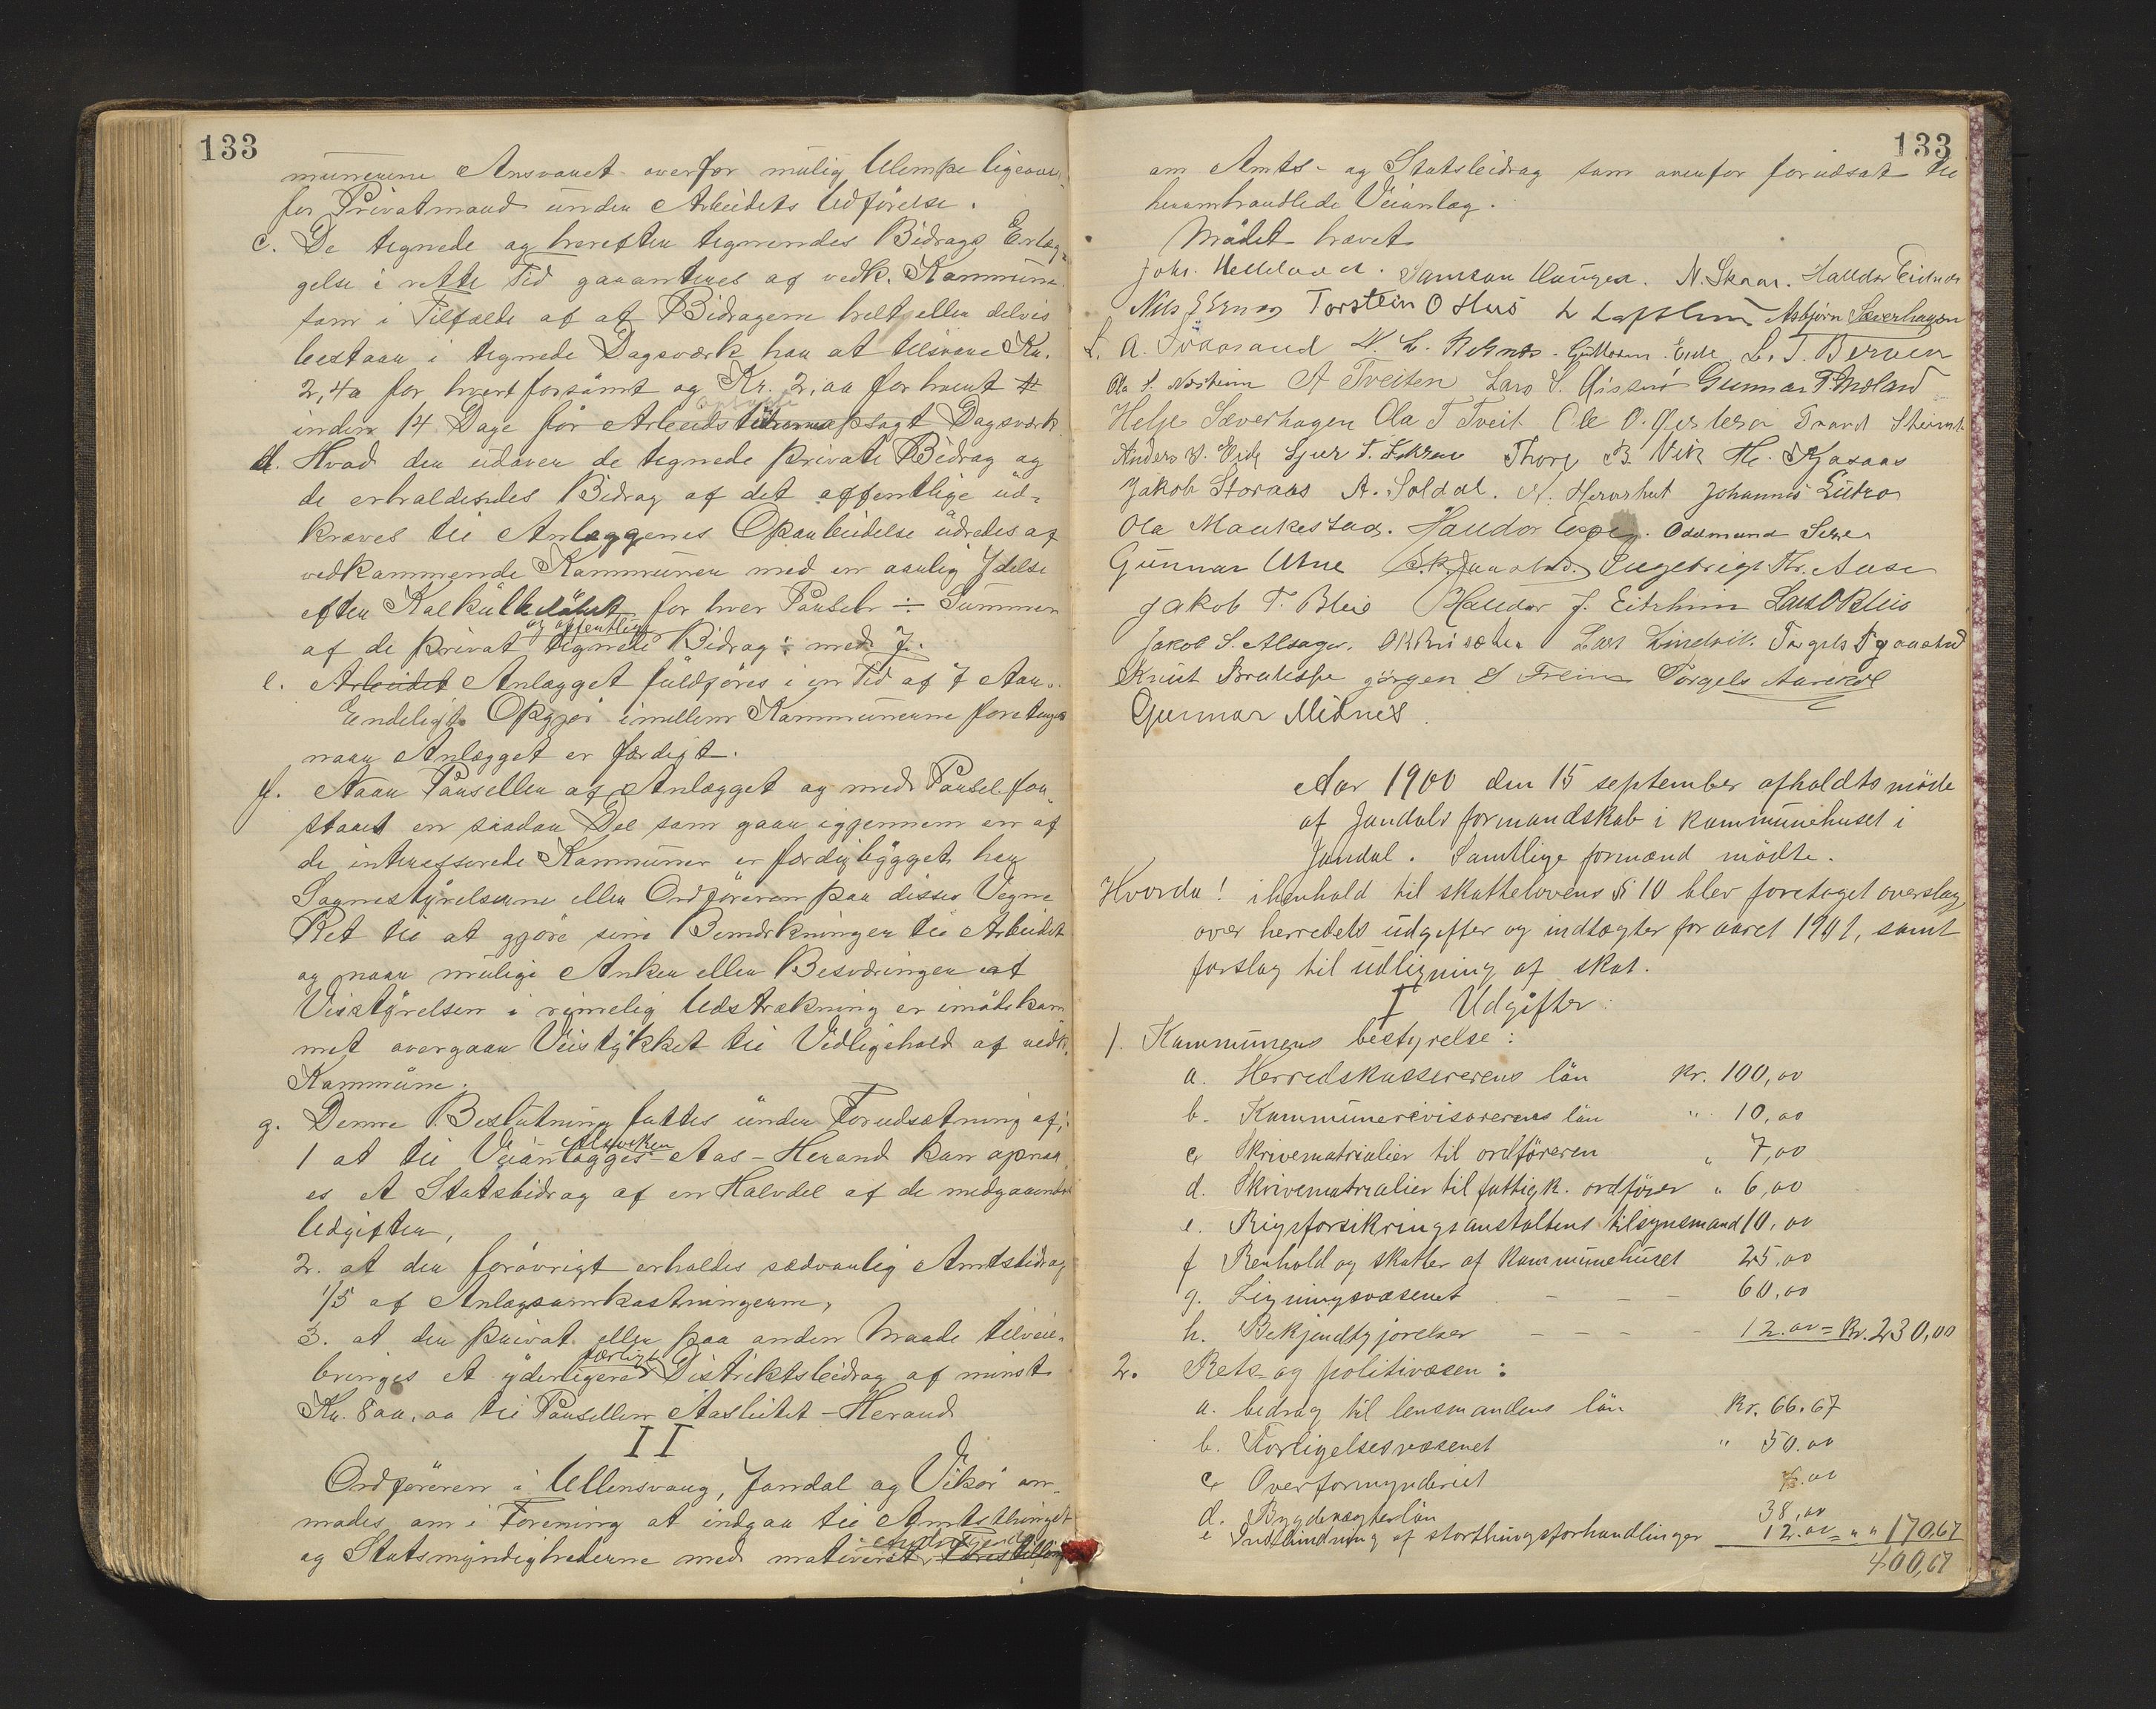 133
munerne Ansvaret overfor mulig Ulempe ligeover
for Privatmand under Arbeidets Udførelse.
c. De tegnede og herefter tegnendes Bidrags Erlæg-
gelse i rette Tid garanteres af vedk. Kommune
som i Tilfælde af at Bidragene helt eller delvis
bestaar i tegnede Dagsværk har at tilsvare Kr.
2,40 for hvert forsømt og Kr. 2,00 for hvert
inden 14 Dage før Arbeidstiden opsagt Dagsværk
d. Hvad der udover de tegnede private Bidrag og
de erholdendes Bidrag af det offentlige ud-
kræves til Anlæggenes Oparbeidelse udredes af
vedkommende Kommuner med en aarlig Ydelse
efter Kalkulbeløbet for hver Parsel ÷ Summen
af de privat og offentlige tegnede Bidrag : med 7.
e. Arbeidet Anlægget fuldføres i en Tid af 7 Aar.
Endeligt Opgjør imellem Kommunerne foretages
naar Anlægget er færdigt.
f. Naar Parseller af Anlægget og med Parsel for-
staaes en saadan Del som gaar igjennem en af
de interesserede Kommuner er færdigbygget har
Sognestyrelserne eller Ordføreren paa disses Vegne
Ret til at gjøre sine Bemærkninger til Arbeidet
og naar mulige Anker eller Besværinger af
Veistyrelsen i rimelig Udstrækning er imødekom
met overgaar Veistykket til Vedligehold af vedk.
Kommune.
g. Denne Beslutning fattes under Forudsætning af;
1 at til Veianlægget Alsaker Aas - Herand kan opnaa
es et Statsbidrag af en Halvdel af de medgaaende
Udgifter,
2. at der forøvrigt erholdes sædvanlig Amtsbidrag
1/5 af Anlægsomkostningerne,
3. at der privat eller paa anden Maade tilveie-
bringes et yderligere særligt Distriktsbidrag af mindst
Kr. 800,00 til Parsellen Aasleitet - Herand
II
Ordføreren i Ullensvang, Jondal og Vikør an-
modes om i Forening at indgaa til Amtsthinget
og Statsmyndighederne med motiveret Andragende
133
om Amts- og Statsbidrag som ovenfor forudsat til
heromhandlede Veianlæg.
Mødet hævet
Johs. Helleland. Samson Haugen. N. Skaar. Halldor Eidnes
Torstein O Hus Asbjørn Sæverhagen
L. T. Berven
A Tveiten Lars S. Gunnar T. Mæland
Helje Sæverhagen Ola T Tveit Ole O.
Thore B. Vik
Jakob Storaas A. Soldal. Johannes Lutro
Ola Maakestad. Halldor Odemund
Gunnar Utne Ingebrigt Kr. Aase
Jakob T. Bleie Haldor J. Eitrheim Lars O Bleie
Jakob S. Alsager. Lars Lindvik. Torgils
Knut Bratespe Jørgen S Torgels
Gunnar Midnes
Aar 1900 den 15 september afholdts møde
af Jondals formandskab i kommunehuset i
Jondal. Samtlige formænd mødte.
Hvorda! i henhold til skattelovens § 10 blev foretaget overslag
over herredets udgifter og indtægter for aaret 1901, samt
forslag til udligning af skat.
I Udgifter:
1. Kommunens bestyrelse:
a. Herredskassererens løn Kr. 100,00
b. Kommunerevisorerens løn " 10,00
c. Skrivematrialier til ordføreren " 7,00
d. Skrivematrialier til fattigk. ordfører " 6,00
e. Rigsforsikringsanstaltens tilsynsmand 10,00
f Renhold og skatter af kommunehuset 25,00
g. Ligningsvæsenet - - - 60,00
h. Bekjendtgjørelser - - - - 12.00 = Kr. 230,00
2. Rets- og politivæsen:
a. bedrag til lensmandens løn Kr. 66.67
b. Forligelsesvæsenet " 50.00
c. Overformynderiet
d. Bygdevægterløn 38,00
e Indbindning af storthingsforhandlinger 12.00 = " " 170.67
400,67